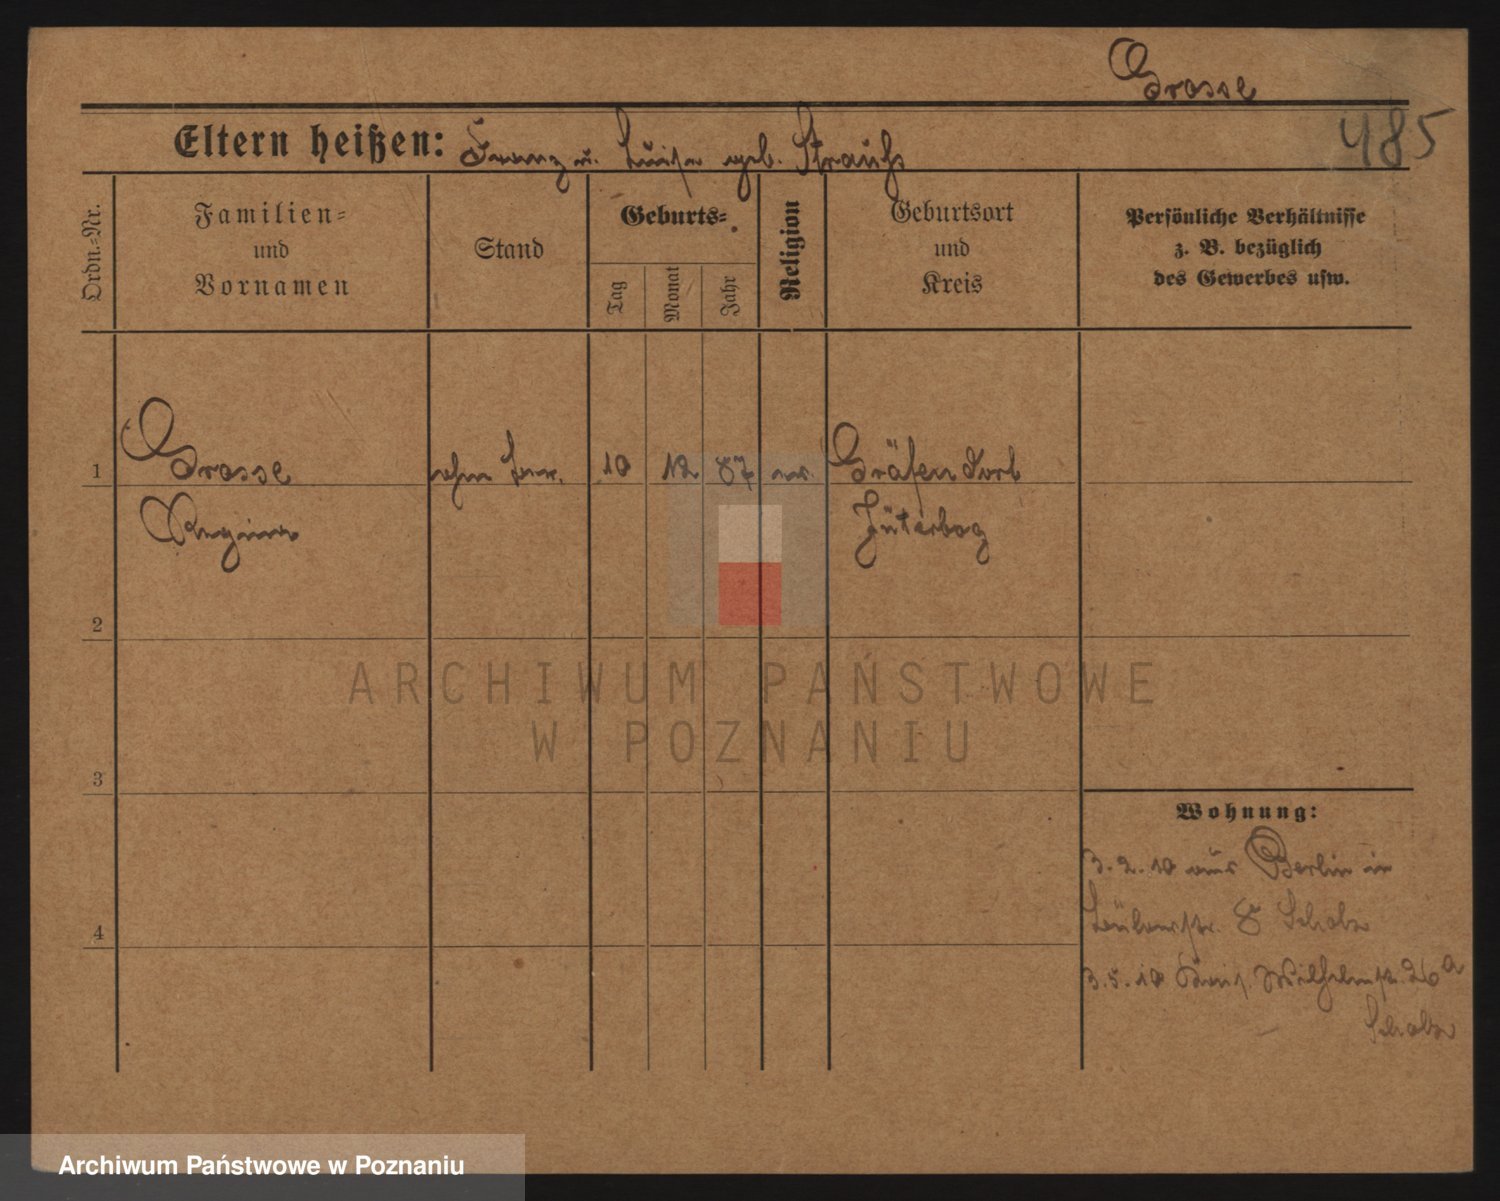 Grosse
485
Eltern heißen: Franz u. Luise geb. Strauß
Ordn.-Nr.
Familien-
und
Vornamen
Stand
Geburts-
Tag
Monat
Jahr
Religion
Geburtsort
und
Kreis
Persönliche Verhältnisse
z. B. bezüglich
des Gewerbes usw.
1
Grosse
10 12 87 ev. Gräfendorf
Jüterbog
2
3
4
Wohnung:
3.2.10 aus Berlin in
8 Scholz
3.5.10 Wilhelmstr. 26a
Scholz
ARCHIWUM PAŃSTWOWE
W POZNANIU
Archiwum Państwowe w Poznaniu